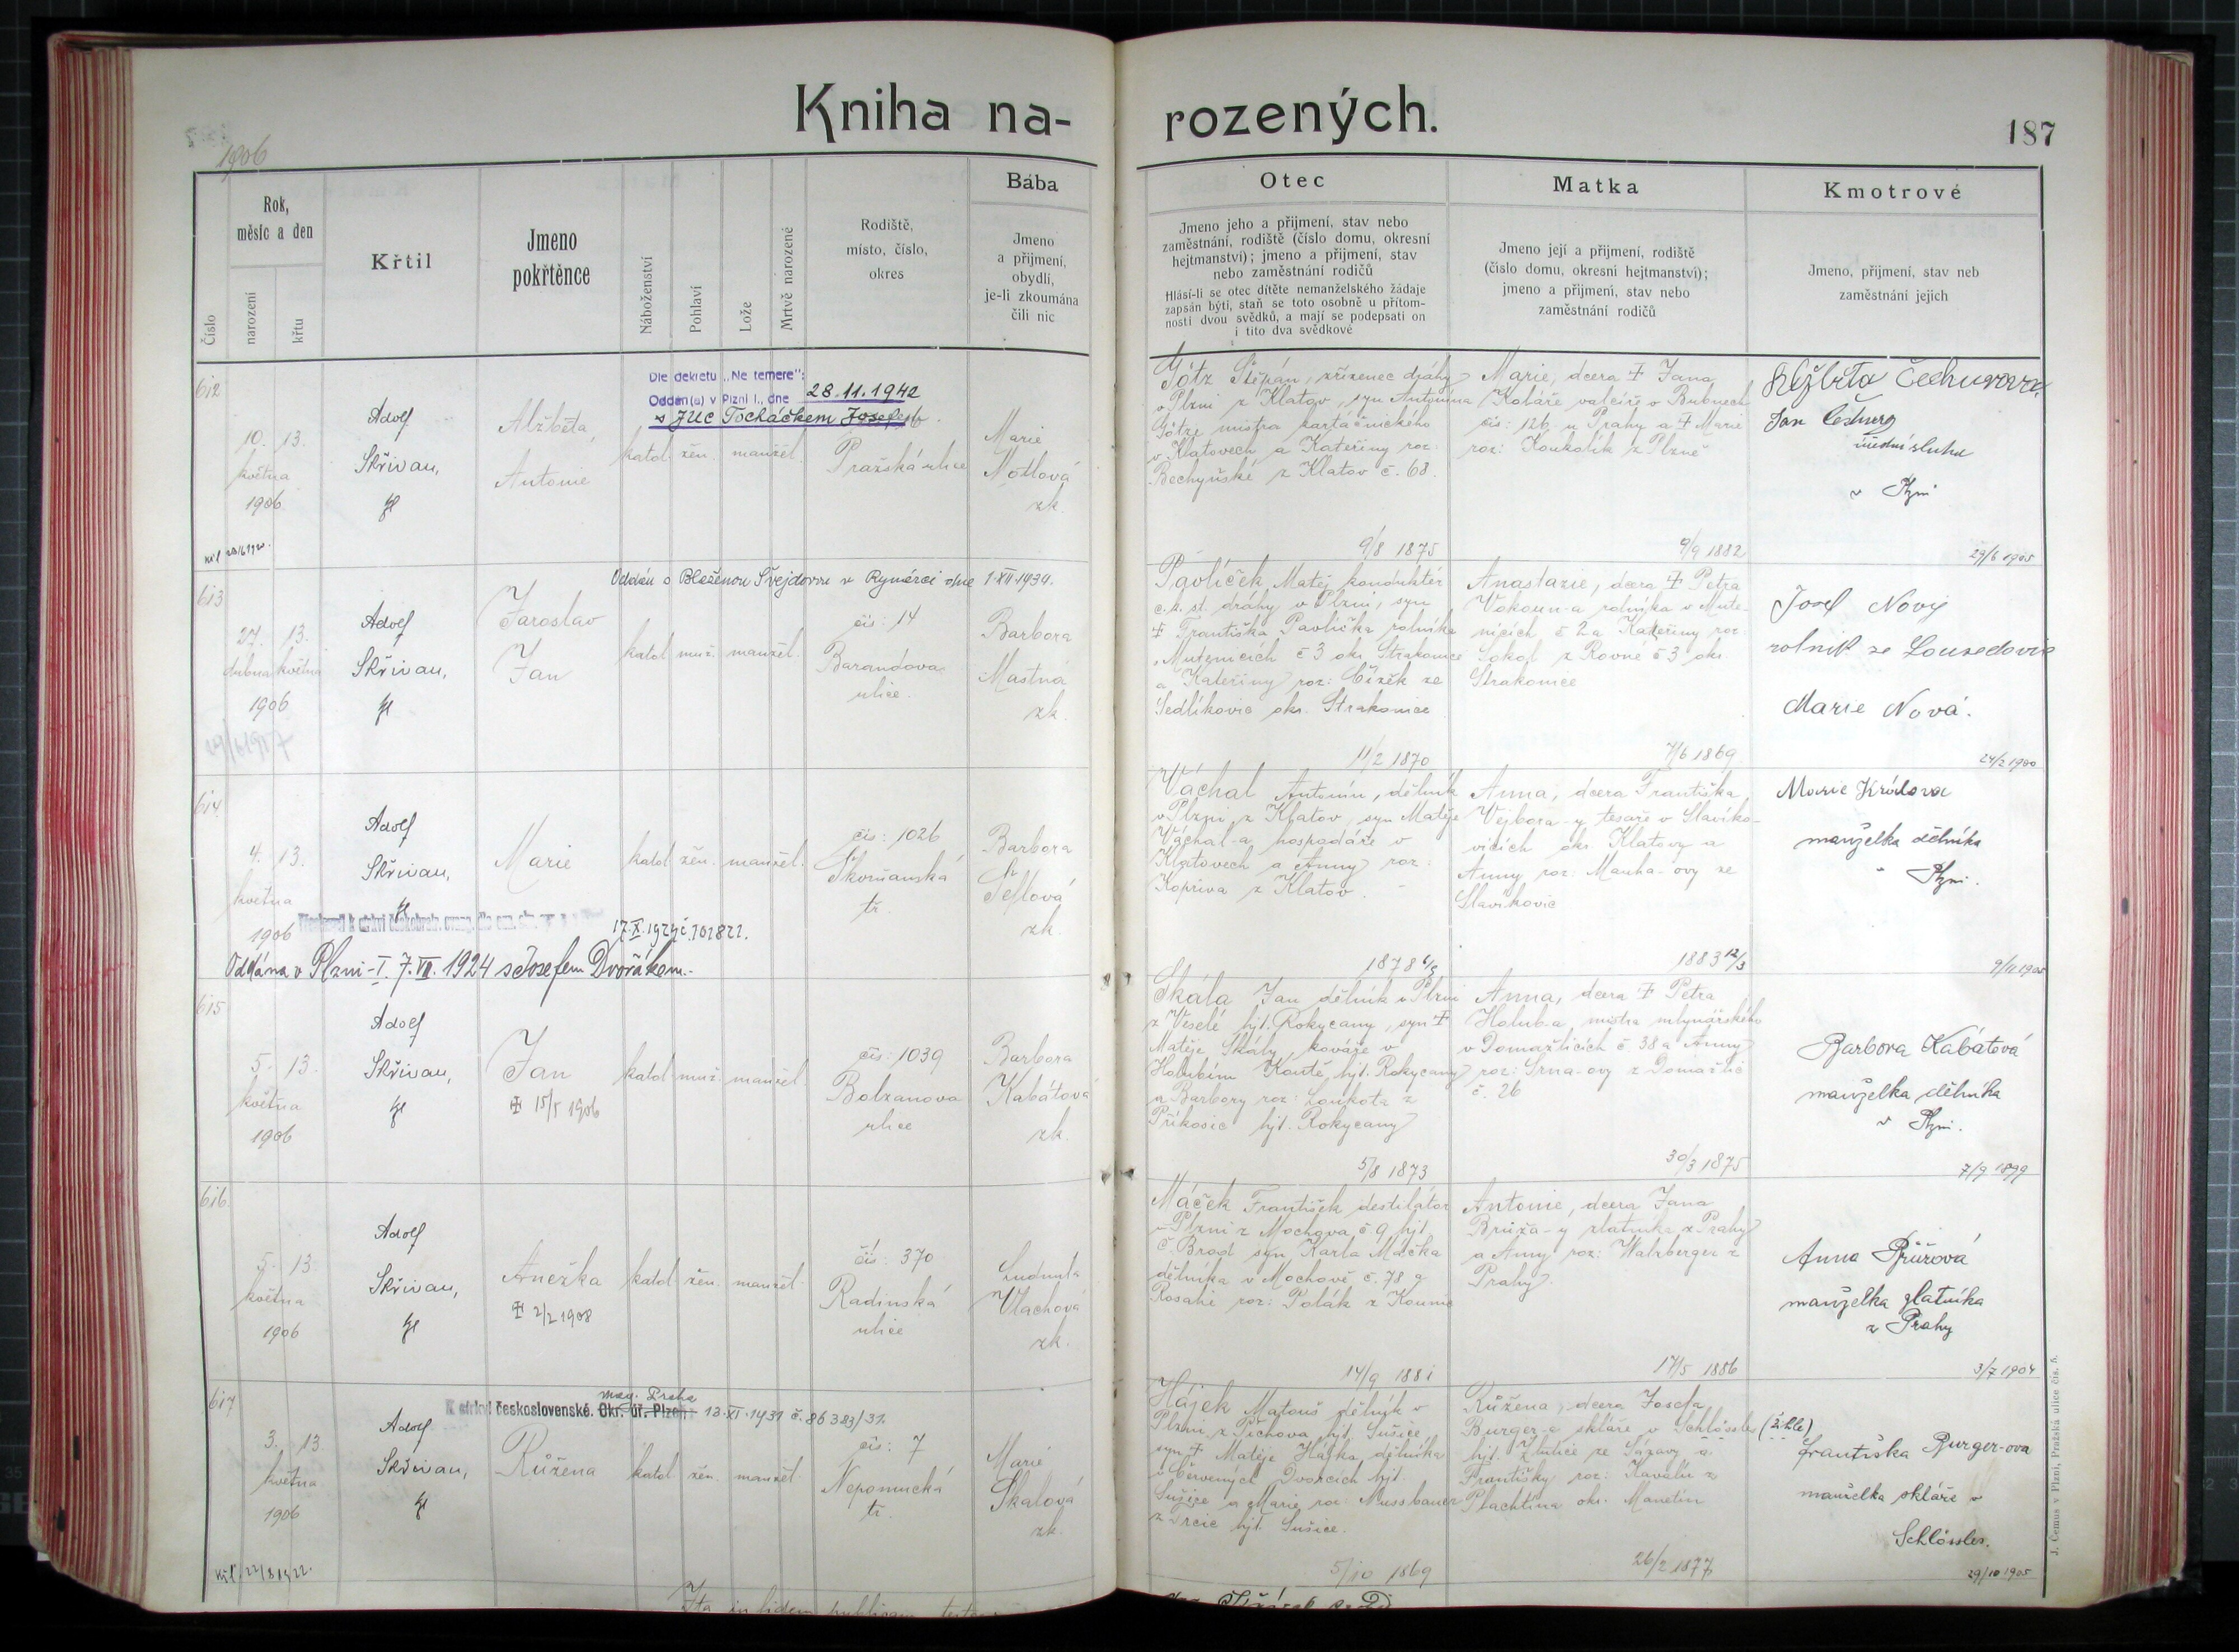 Kniha na-
rozených.
187
1906
Číslo
Rok,
měsíc a den
narození
křtu
Křtil
Jmeno
pokřtěnce
Náboženství
Pohlaví
Lože
Mrtvě narozené
Rodiště,
místo, číslo,
okres
Bába
Jmeno
a přijmení,
obydlí,
je-li zkoumána
čili nic
Otec
Jmeno jeho a přijmení, stav nebo
zaměstnání, rodiště (číslo domu, okresní
hejtmanství); jmeno a přijmení, stav
nebo zaměstnání rodičů
Hlásí-li se otec dítěte nemanželského žádaje
zapsán býti, staň se toto osobně u přítom-
nosti dvou svědků, a mají se podepsati on
i tito dva svědkové
Matka
Jmeno její a přijmení, rodiště
(číslo domu, okresní hejtmanství);
jmeno a přijmení, stav nebo
zaměstnání rodičů
Kmotrové
Jmeno, přijmení, stav neb
zaměstnání jejich
612
Dle dekretu „Ne temere":
Oddán(a) v Plzni I., dne 28.11.1942
s JUC Tocháčkem Josefem
10. 13.
května
1906
Adolf
Skřivan,
Alžběta,
Antonie
katol. žen. manžel.
Pražská ulice
Marie
Motlová
zk.
Götz Štěpán, zřízenec dráhy
v Plzni z Klatov, syn Antonína
Götze mistra kartáčnického
v Klatovech a Kateřiny roz:
Bechyňské z Klatov č. 68.
9/8 1875
Marie, dcera † Jana
Koláře valcíře v Bubnech
čís: 126 u Prahy a † Marie
roz: Koukolík z Plzně
9/9 1882
Alžběta Čechurova
Jan
úřední sluha
v Plzni
29/6 1905
613
Oddán s Blaženou Švejdovou v Rynárci dne 1.XII.1934.
27. 13.
dubna května
1906
Adolf
Skřivan,
Jaroslav
Jan
katol. muž. manžel.
čís: 14
Barandova
ulice.
Barbora
Mastná
zk.
Pavlíček Matěj konduktér
c.k. st. dráhy v Plzni, syn
† Františka Pavlíčka rolníka
v Mutěnicích č 3 okr. Strakonice
a Kateřiny roz: Čížek ze
Sedlíkovic okr. Strakonice
11/2 1870
Anastazie, dcera † Petra
Vokoun-a rolníka v Mutě-
nicích č 2 a Kateřiny roz:
Sokol z Rovné č 3 okr.
Strakonice
7/6 1869
Josef Nový
rolník ze Lousedovic
Marie Nová.
24/2 1900
614
4. 13.
května
1906
Adolf
Skřivan,
Marie
katol. žen. manžel.
čís: 1026
Skvrňanská
tř.
Barbora
Šeflová
zk.
17.X.1921 č. 101821.
Oddána v Plzni-I. 7.VII.1924 s Josefem Dvořákem.
Váchal Antonín, dělník
v Plzni z Klatov, syn Matěje
Váchal-a hospodáře v
Klatovech a Anny roz:
Kopřiva z Klatov.
1878 6/8
Anna, dcera Františka
Vejbora-y tesaře v Slavíko-
vicích okr. Klatovy a
Anny roz: Mauha-ovy ze
Slavíkovic
1883 12/3
Marie Králova
manželka dělníka
v Plzni.
9/11 1905
615
5. 13.
května
1906
Adolf
Skřivan,
Jan
† 15/5 1906
katol. muž. manžel.
čís: 1039
Bolzanova
ulice
Barbora
Kabátová
zk.
Skála Jan dělník v Plzni
z Veselé hjt. Rokycany, syn †
Matěje Skály kováře v
Holubím Koutě, hjt. Rokycany
a Barbory roz: Loukota z
Příkosic hjt. Rokycany
5/8 1873
Anna, dcera † Petra
Holub-a, mistra mlynářského
v Domažlicích č 38 a Anny
roz: Srna-ovy z Domažlic
č. 26
30/3 1875
Barbora Kabátová
manželka dělníka
v Plzni.
7/9 1899
616.
5. 13.
května
1906
Adolf
Skřivan,
Anežka
† 2/2 1908
katol. žen. manžel.
čís: 370
Radinská
ulice
Ludmila
Vlachová
zk.
Máček František destilátor
v Plzni z Mochova č 9 hjt.
Č. Brod syn Karla Máčka
dělníka v Mochově č. 78 a
Rosalie roz: Polák z Kounic
14/9 1881
Antonie, dcera Jana
Brůža-y zlatníka z Prahy
a Anny roz: Walzberger z
Prahy.
17/5 1886
Anna Průšová
manželka zlatníka
z Prahy
3/7 1904
617
K církvi československé. Okr. úř. Plzeň mag. Praha 13.XI.1931 č. 86383/31.
3. 13.
května
1906
Adolf
Skřivan,
Růžena
katol. žen. manžel.
čís: 7
Nepomucká
tř.
Marie
Skalová
zk.
Hájek Matouš dělník v
Plzni z Píchova hjt. Sušice
syn † Matěje Hájka dělníka
v Červených Dvorcích hjt.
Sušice a Marie roz: Nussbauer
hjt. Sušice.
5/10 1869
Růžena, dcera Josefa
Burger-a skláře v Schlössles (Žihle)
hjt. Žlutice ze Sázavy a
Františky roz: Kavalír z
Plachtína okr. Manetín
26/2 1877
Františka Burger-ova
manželka skláře v
Schlössles.
29/10 1905
J. Čemus v Plzni, Pražská ulice čís. 5.
Ita in fidem publicam